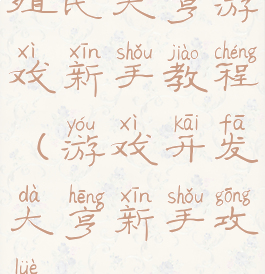 殖民大亨游
xì xīn shǒu jiào chéng
戏新手教程
yóu xì kāi fā
（游戏开发
dà hēng xīn shǒu gōng
大亨新手攻
lüè